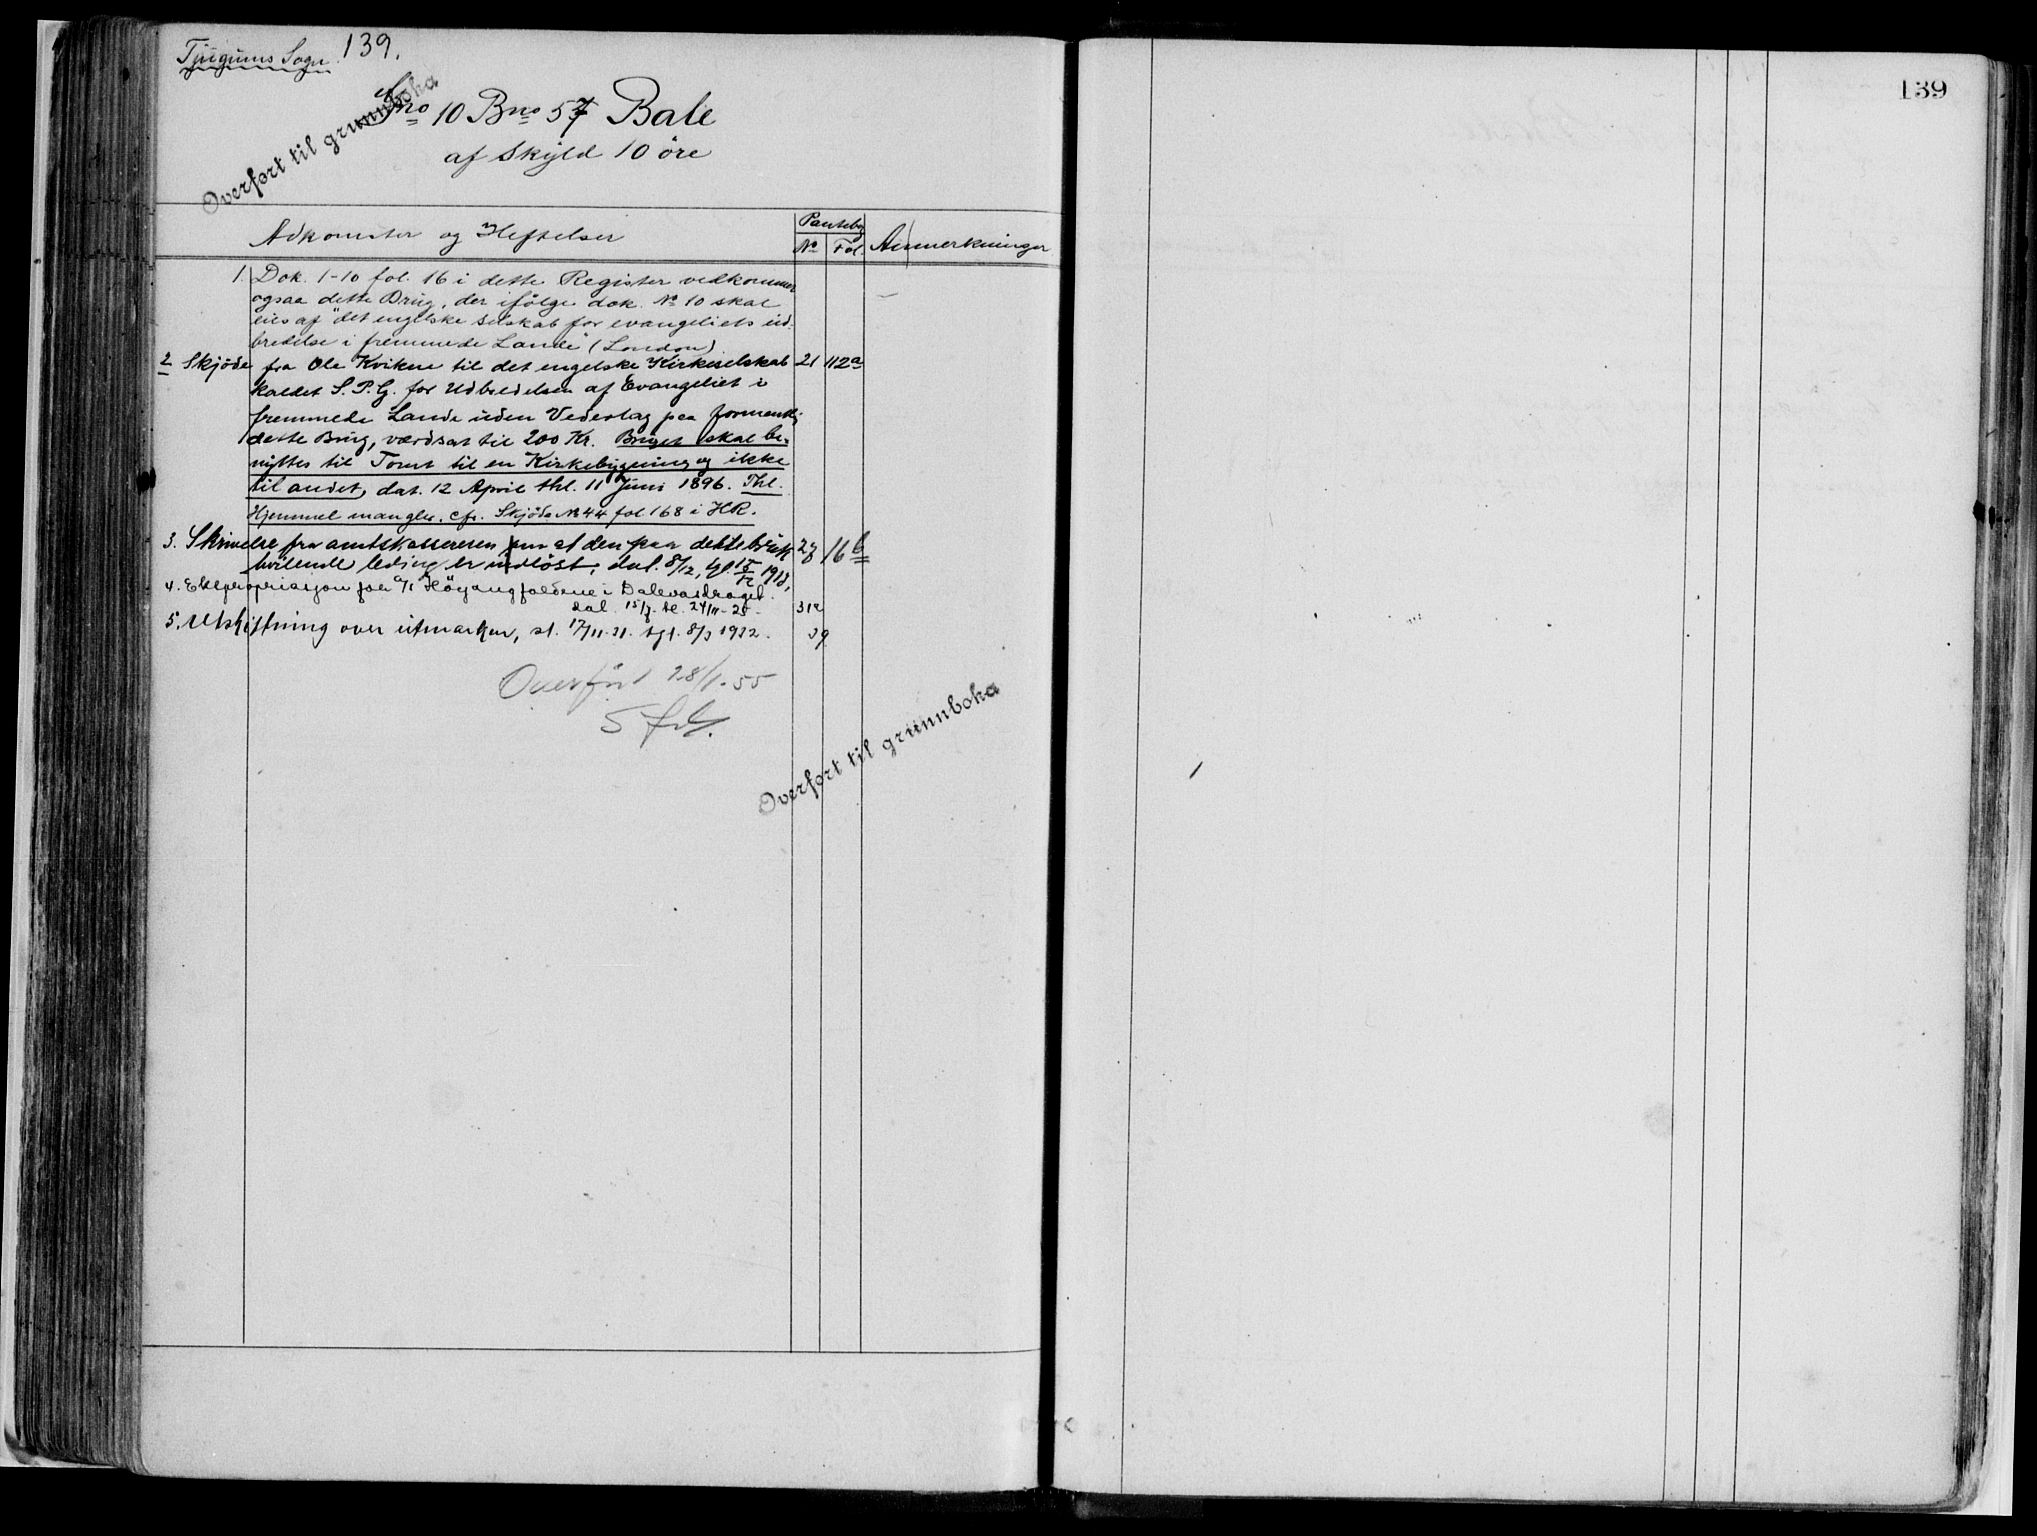 Tjugums Sogn. 139.
Gno 10 Bno 57 Bale
af Skyld 10 öre
Overført til grunnboka
Adkomster og Heftelser
Pantebog
No Fol.
Anmerkninger
1. Dok. 1-10 fol. 16 i dette Register vedkommer
ogsaa dette Brug, der ifölge dok. No 10 skal
eies af "det engelske selskab for evangeliets ud-
bredelse i fremmede Lande" (London)
2 Skjöde fra Ole Kvikne til det engelske Kirkeselskab 21 112a
kaldet S. P. G. for Udbredelsen af Evangeliet i
fremmede Lande uden Vederlag paa
dette Brug, værdsat til 200 Kr. Bruget skal be-
nyttes til Tomt til en Kirkebygning og ikke
til andet, dat. 12 April thl. 11 Juni 1896. Thl.
Hjemmel mangler. cfr. Skjöde No 44 fol 168 i HR.
3. Skrivelse fra amtskassereren om at den paa dette bruk 27 16b
hvilende leding er indlöst, dat. 8/12, tgl. 1918,
4. Ekspropriasjon for a/s Höyangfaldene i Dalevasdraget.
dat. 15/7- tl. 24/11-25- 31a
5. Utskiftning over utmarken, sl. 17/11-31. tgl. 8/3 1932. 39
Overfört 28/1-55
Overført til grunnboka
139